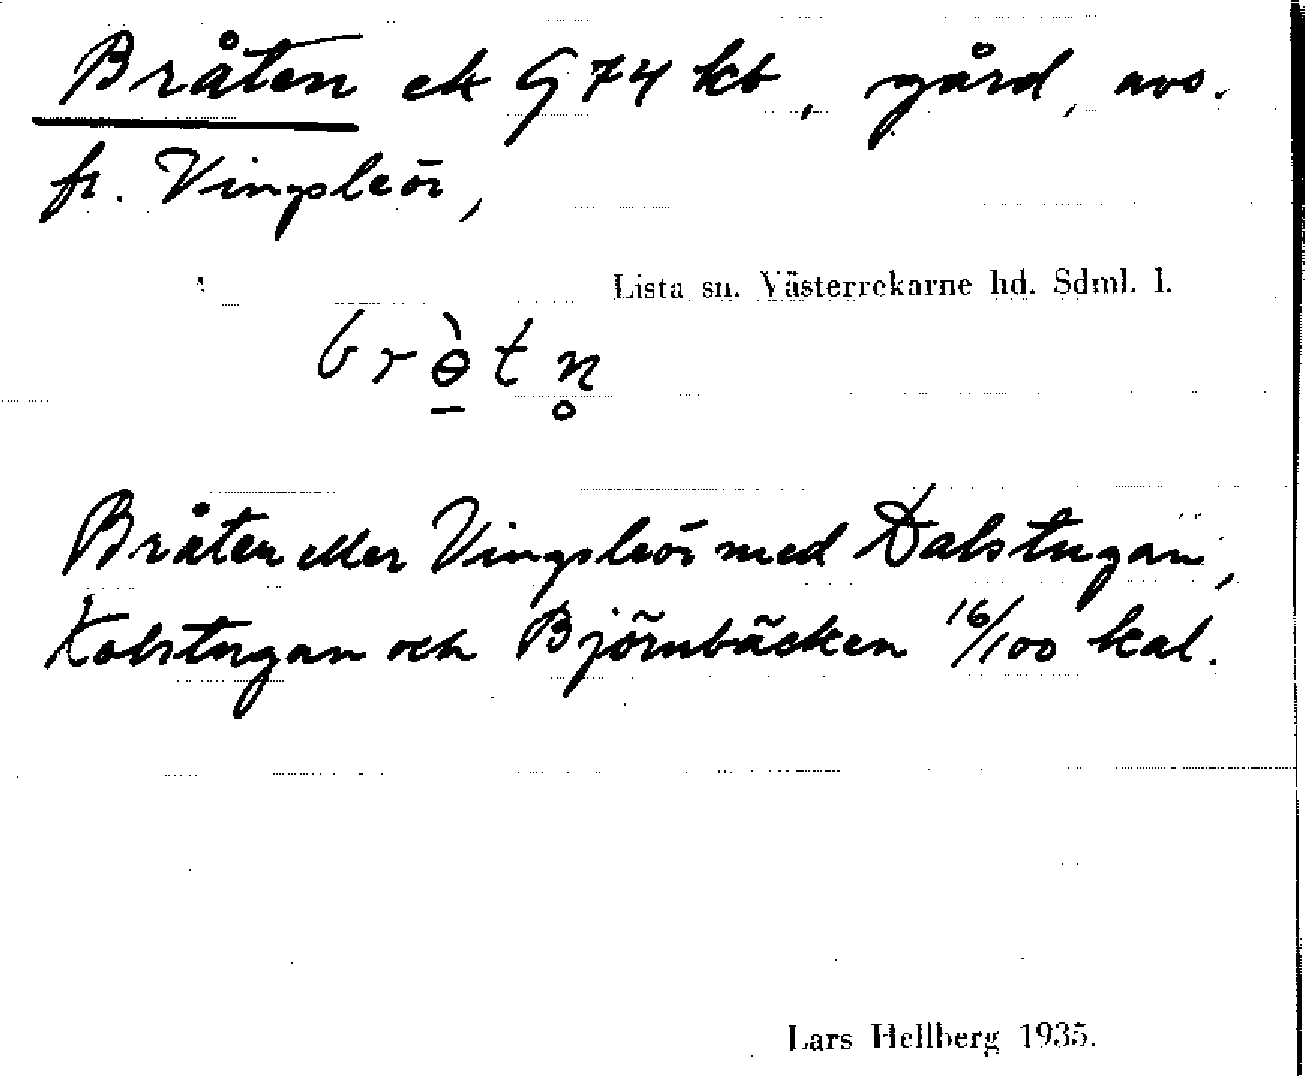 Bråten ek G 74 kb, gård, avs.
fr. Vingsleör,
Lista sn. Västerrekarne hd. Sdml. l.
brɵ̠̀tn̥
Bråten eller Vingsleör med Dalstugan,
Kolstugan och Björnbäcken 16/100 kal.
Lars Hellberg 1935.